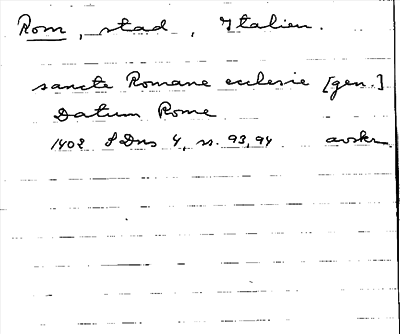 Rom, stad, Italien.
sancte Romane ecclesie [gen.]
Datum Rome
1402 SDns 4, n. 93, 94 avskr.